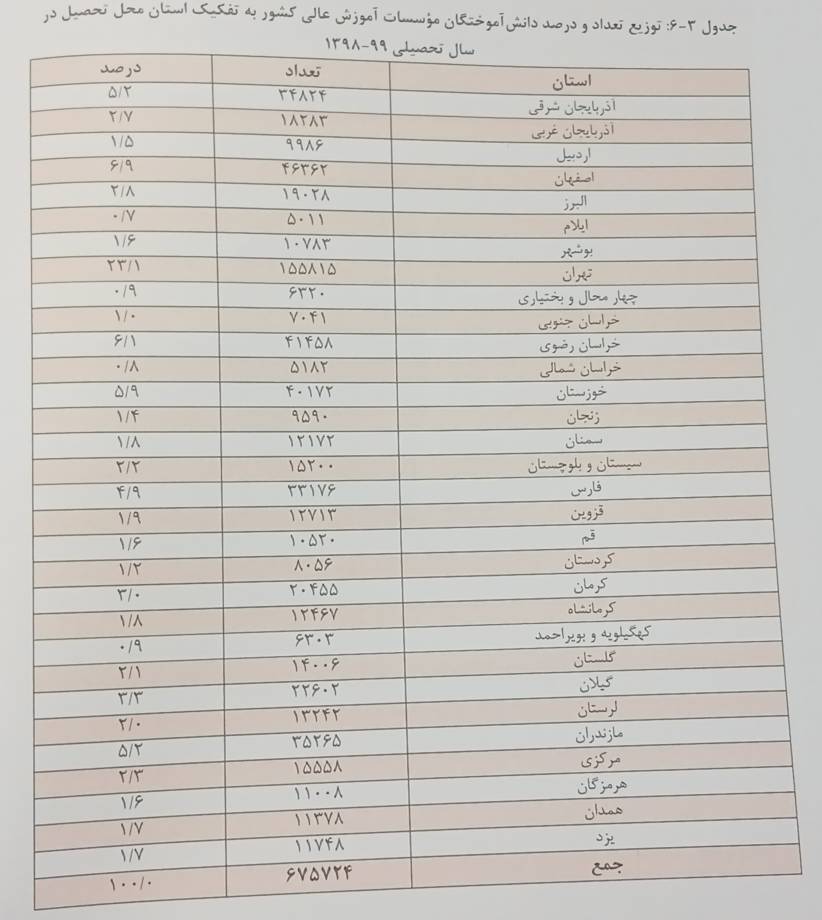 جدول ۳-۶: توزیع تعداد و درصد دانش‌آموختگان مؤسسات آموزش عالی کشور به تفکیک استان محل تحصیل در
سال تحصیلی ۹۹-۱۳۹۸
استان تعداد درصد
آذربایجان شرقی ۳۴۸۲۴ ۵/۲
آذربایجان غربی ۱۸۲۸۳ ۲/۷
اردبیل ۹۹۸۶ ۱/۵
اصفهان ۴۶۳۶۲ ۶/۹
البرز ۱۹۰۲۸ ۲/۸
ایلام ۵۰۱۱ ۰/۷
بوشهر ۱۰۷۸۳ ۱/۶
تهران ۱۵۵۸۱۵ ۲۳/۱
چهار محال و بختیاری ۶۳۲۰ ۰/۹
خراسان جنوبی ۷۰۴۱ ۱/۰
خراسان رضوی ۴۱۴۵۸ ۶/۱
خراسان شمالی ۵۱۸۲ ۰/۸
خوزستان ۴۰۱۷۲ ۵/۹
زنجان ۹۵۹۰ ۱/۴
سمنان ۱۲۱۷۲ ۱/۸
سیستان و بلوچستان ۱۵۲۰۰ ۲/۲
فارس ۳۳۱۷۶ ۴/۹
قزوین ۱۲۷۱۳ ۱/۹
قم ۱۰۵۲۰ ۱/۶
کردستان ۸۰۵۶ ۱/۲
کرمان ۲۰۴۵۵ ۳/۰
کرمانشاه ۱۲۴۶۷ ۱/۸
کهگیلویه و بویراحمد ۶۳۰۳ ۰/۹
گلستان ۱۴۰۰۶ ۲/۱
گیلان ۲۲۶۰۲ ۳/۳
لرستان ۱۳۲۴۲ ۲/۰
مازندران ۳۵۲۶۵ ۵/۲
مرکزی ۱۵۵۵۸ ۲/۳
هرمزگان ۱۱۰۰۸ ۱/۶
همدان ۱۱۳۷۸ ۱/۷
یزد ۱۱۷۴۸ ۱/۷
جمع ۶۷۵۷۲۴ ۱۰۰/۰